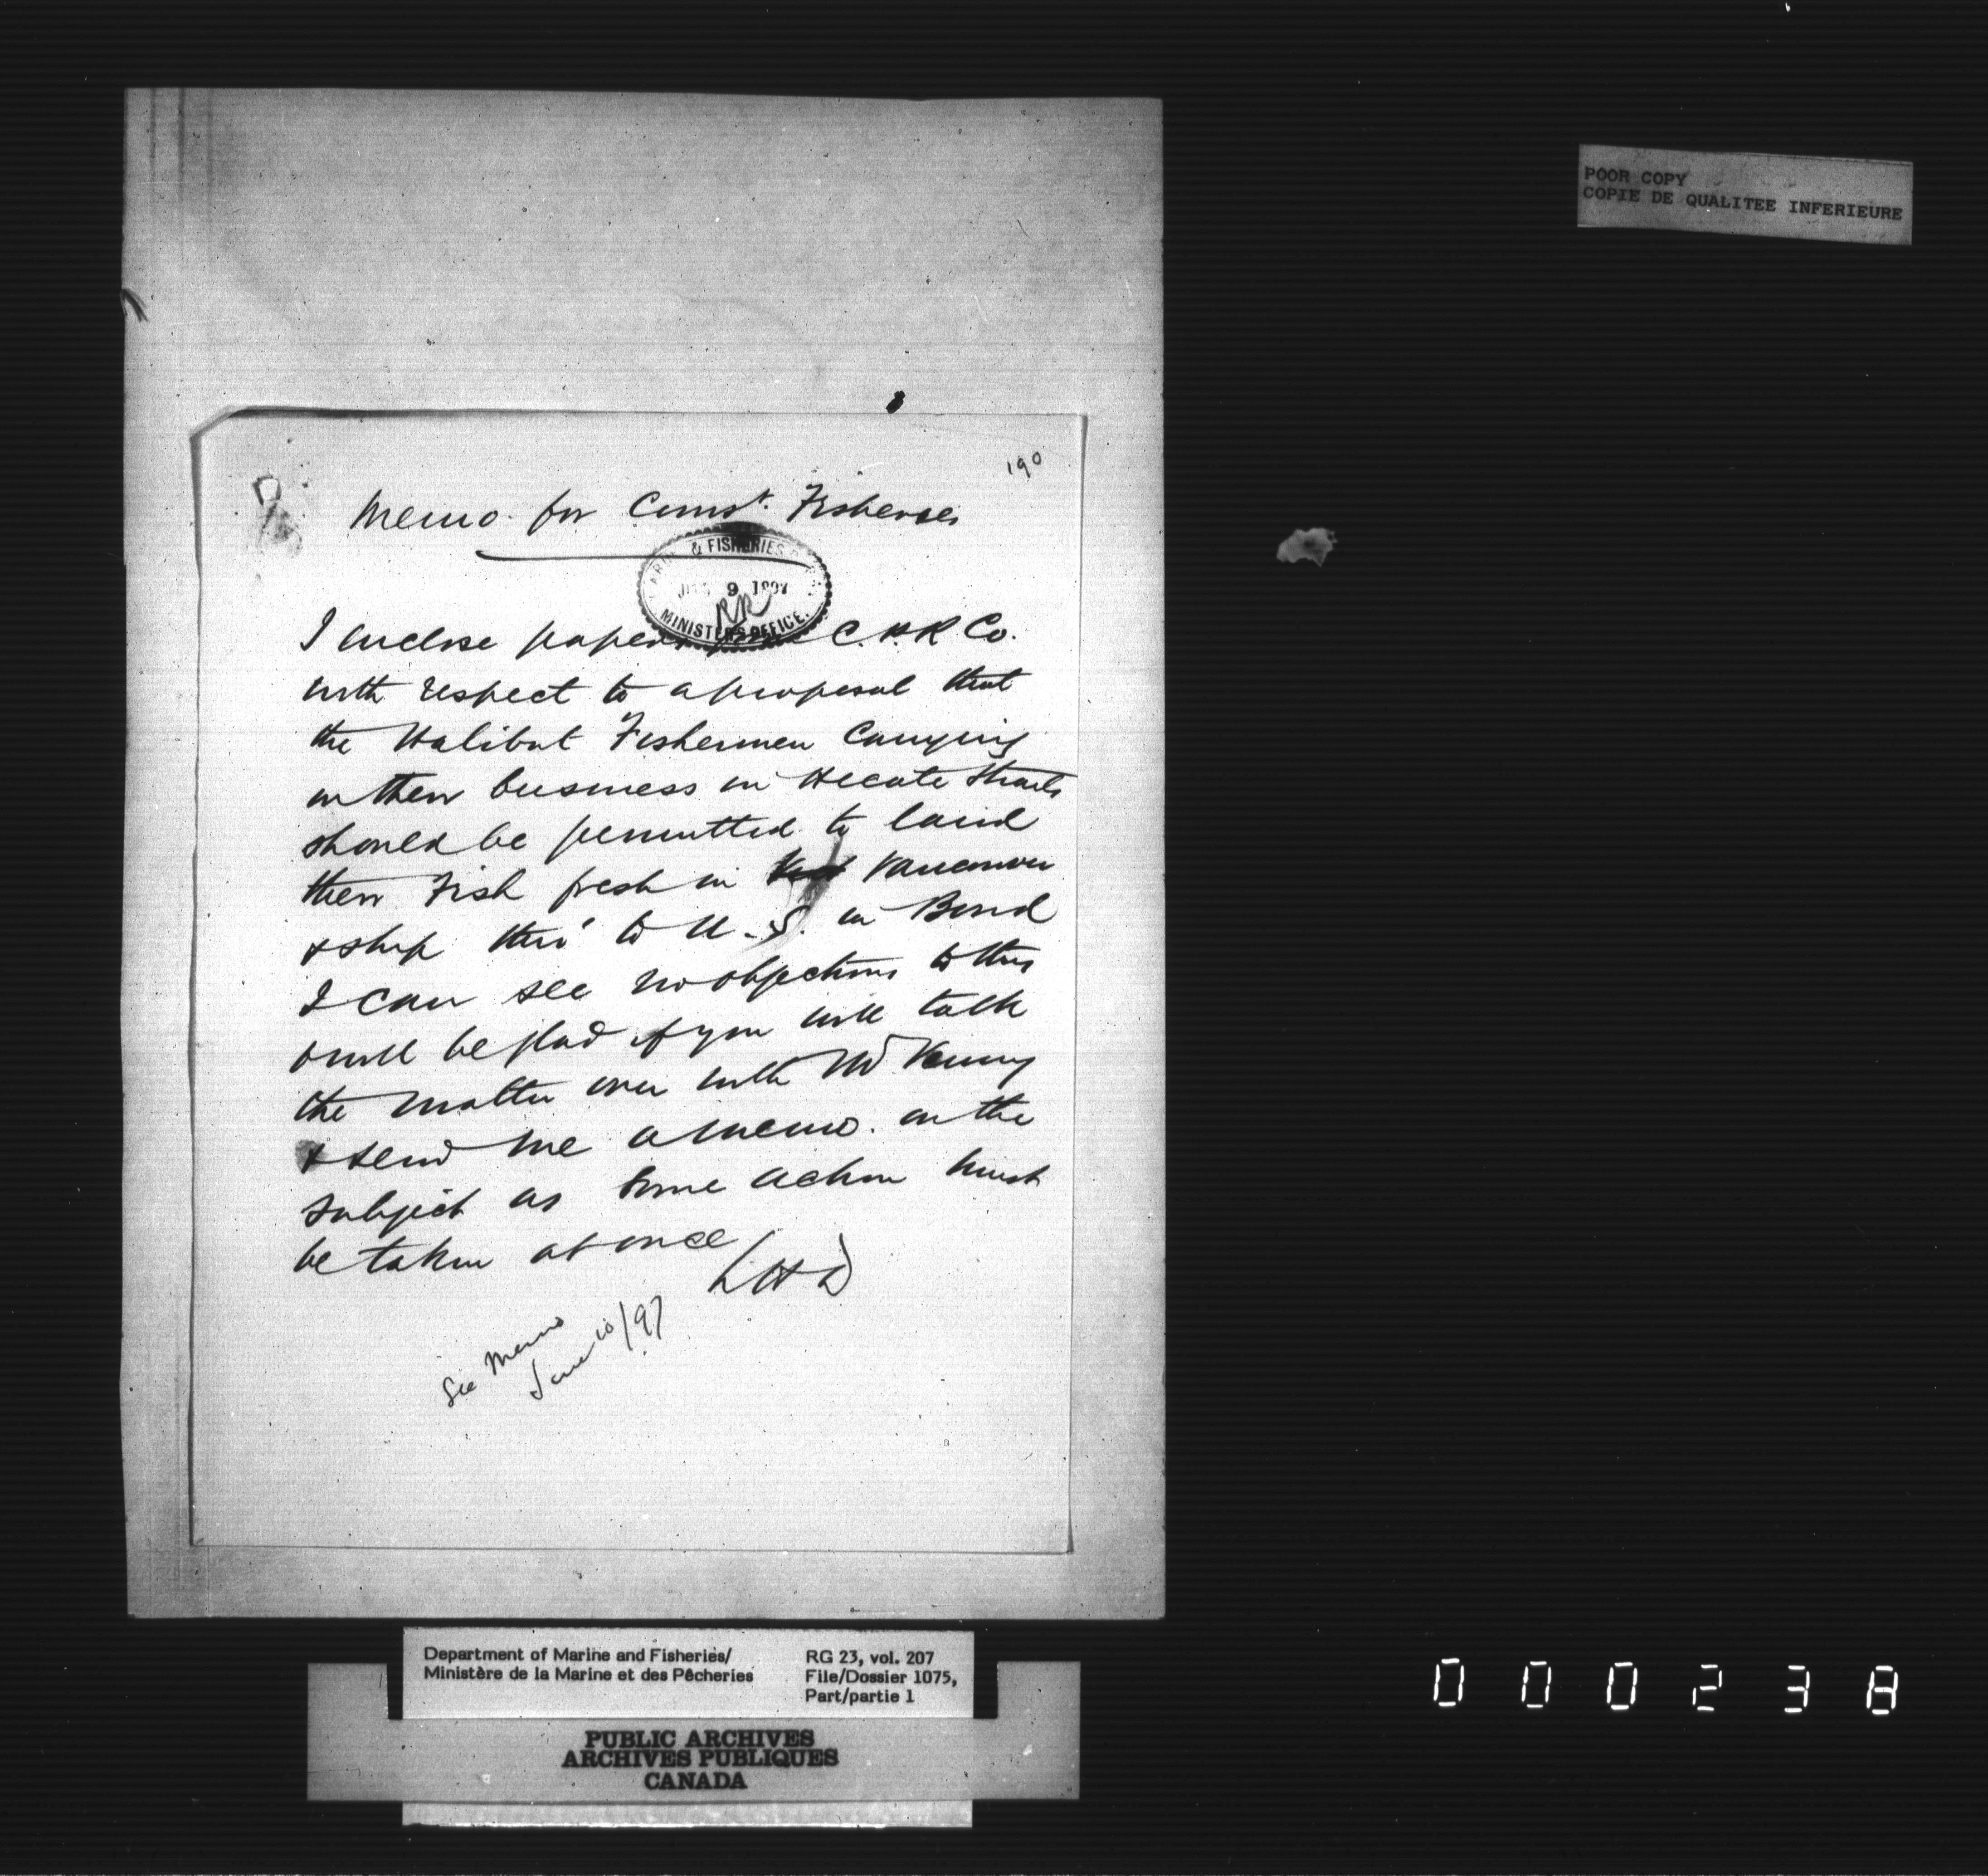 190
Memo for Comsr. Fisheries
& FISHERIES
9 1897
RR
MINISTER'S OFFICE.
I enclose papers from C.P.R Co.
with respect to a proposal that
the Halibut Fishermen Carrying
on their business in Hecate Straits
should be permitted to land
their Fish fresh in Vancouver
& ship thro' to U.S. in Bond
I can see no objections to this
& will be glad if you will talk
the matter over with Mr Venning
& send me a memo. on the
subject as some action must
be taken at once
LHD
See Memo
June 10/97
POOR COPY
COPIE DE QUALITEE INFERIEURE
Department of Marine and Fisheries/
Ministère de la Marine et des Pêcheries
RG 23, vol. 207
File/Dossier 1075,
Part/partie 1
PUBLIC ARCHIVES
ARCHIVES PUBLIQUES
CANADA
000238